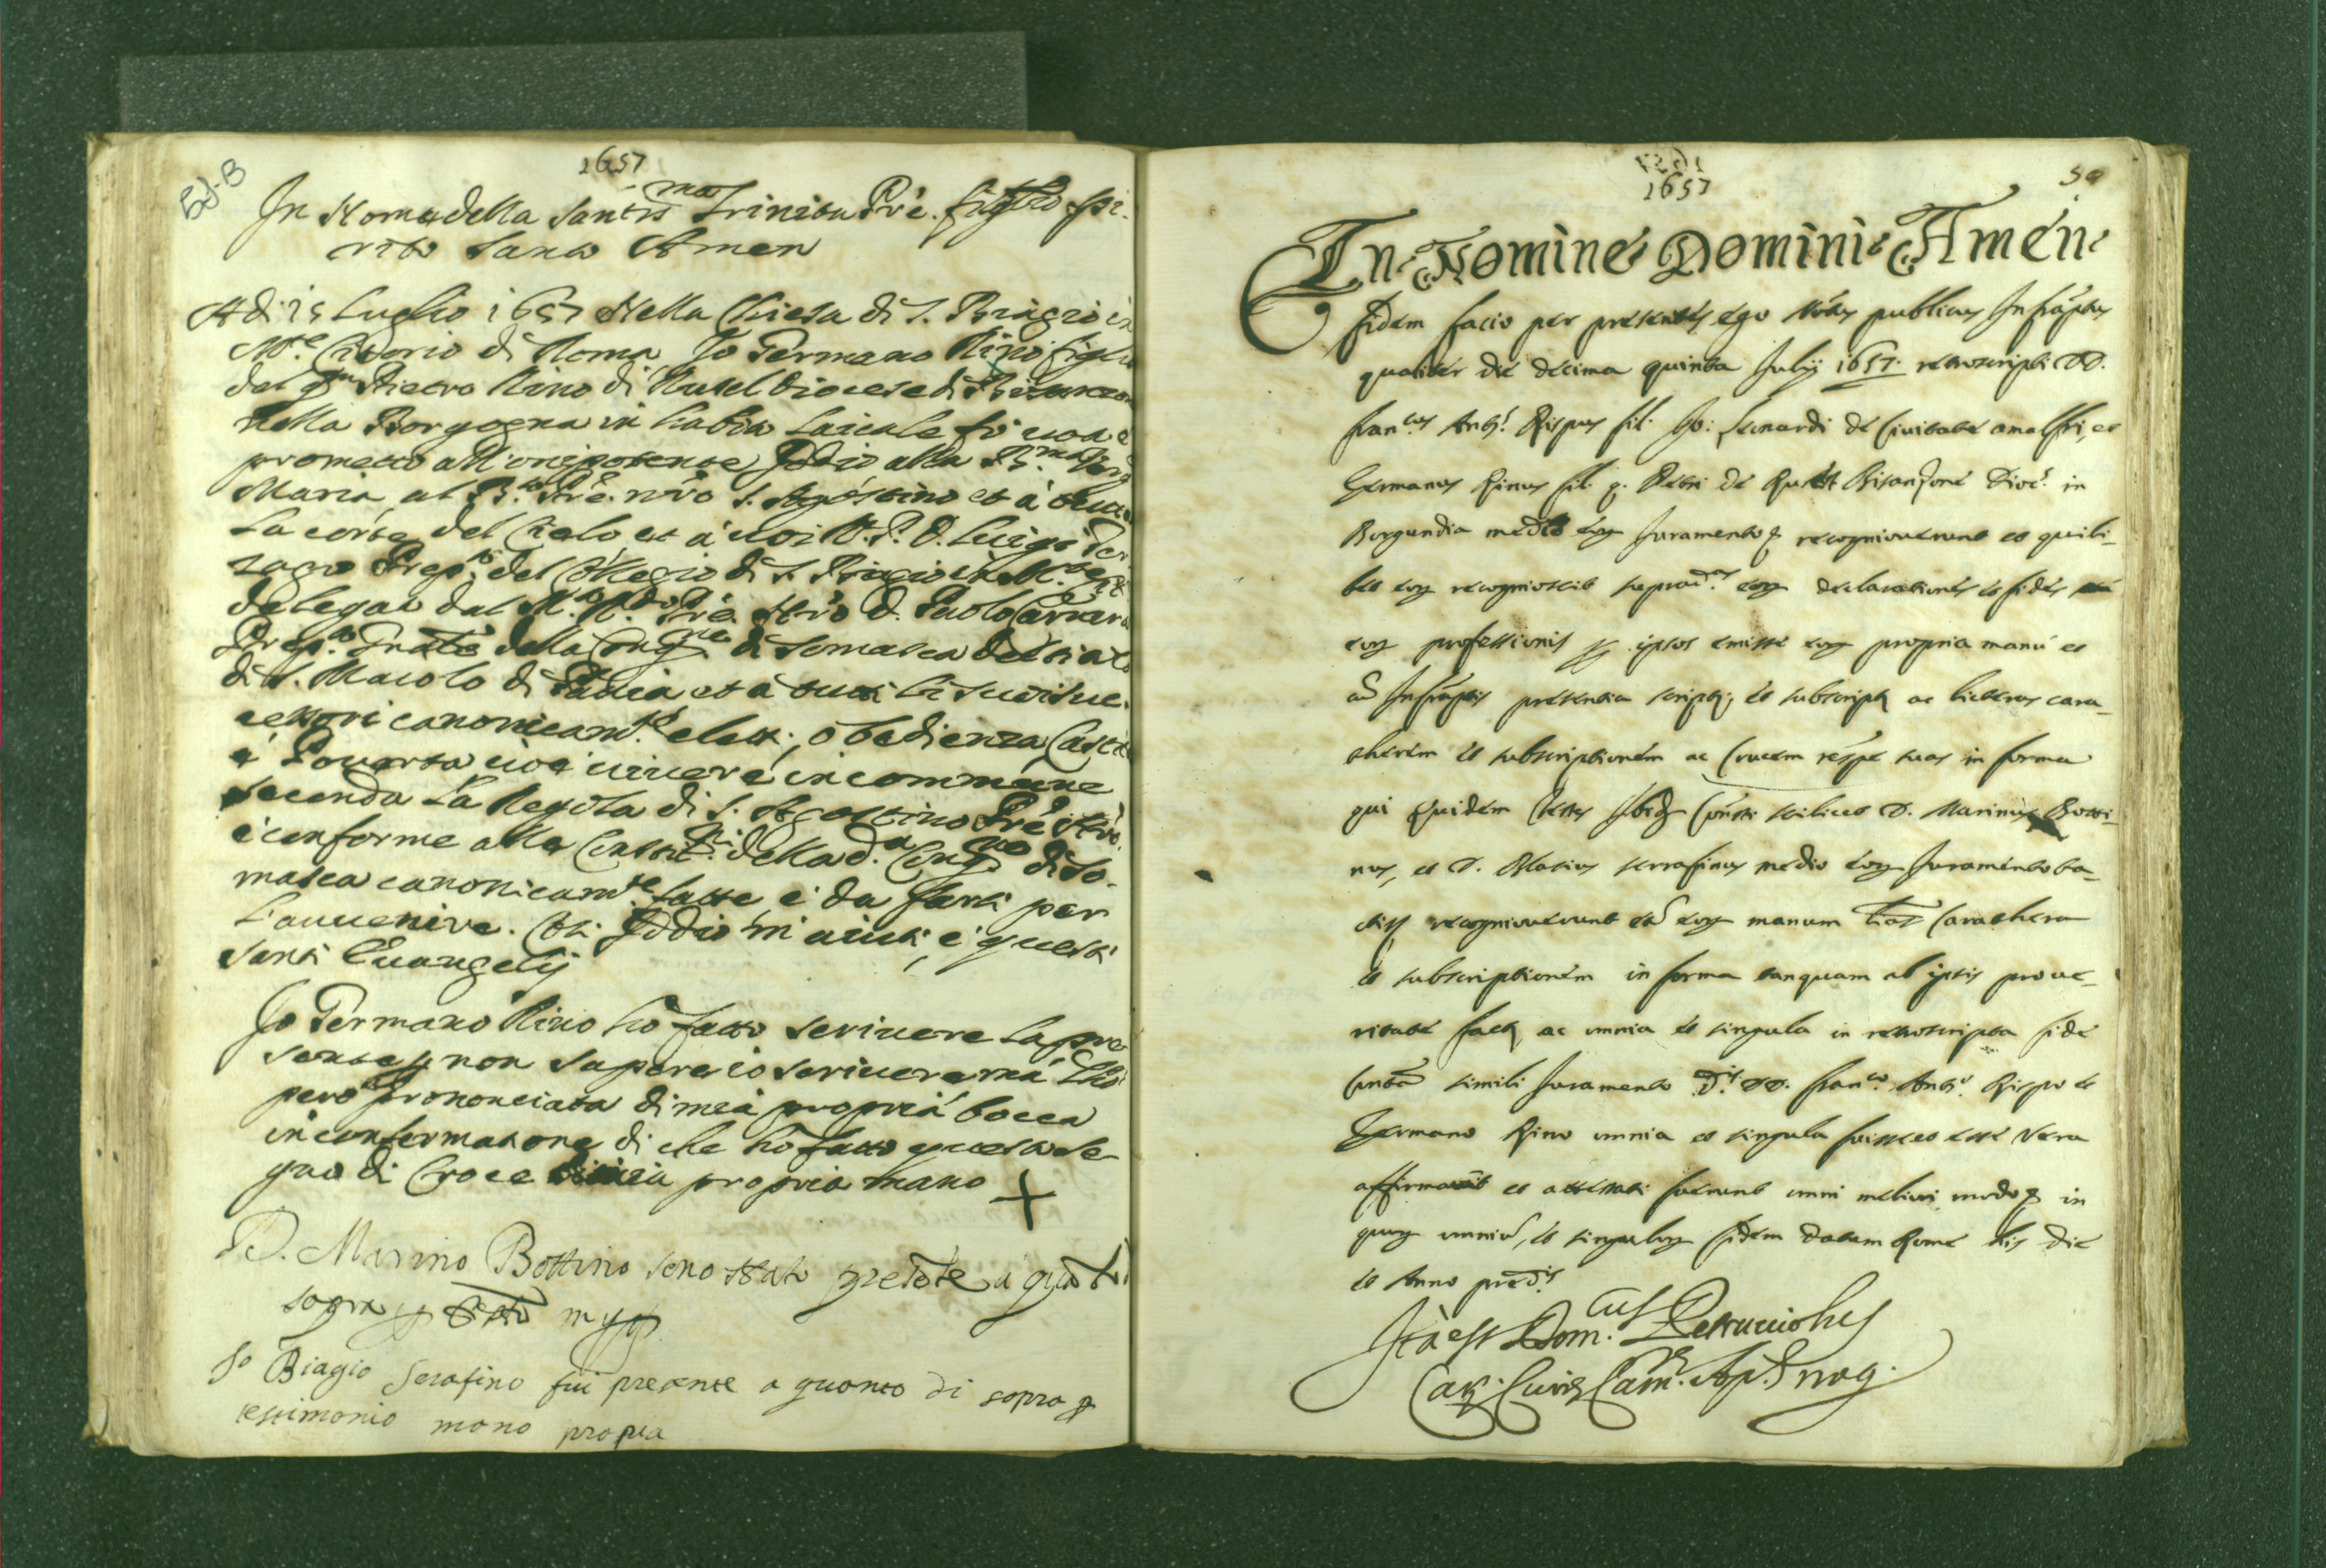 1657
In Nome della Santis.ma Trinita Prē. figlio spi-
rito Santo Amen
A di 15 Luglio 1657 Nella Chiesa di S. Biagio in
M.te Citorio di Roma Io Germano Rino figlio
del qm Pietro Rino di Rusel Diocese di
nella Borgogna in habito laicale fò voto e
prometto all'onipotente Iddio alla B.ma Verg
Maria, al B.to Prē. nrō S. Agostino et à tutta
la corte del Cielo et à voi M. P. D. Luigi
Prep.to del Collegio di S. Biagio
delegato dal M.to R.do Prē. Nrō D. Paolo Carrara
Prep.to Gnale della Cong.ne di Somasca
di S. Maiolo di Pavia, et à tutti li suoi suc-
cessori canonicam.te eletti, obedienza Casti
e Poverta cioè vivere in commune
secondo la Regola di S. Agostino Prē Nrō.
e conforme alle Constit.ni della d.a Cong.ne di So-
masca canonicam.te fatte e da farsi per
l'avvenire. Così Iddio m'aiuti, e questi
santi Evangelij
Io Germano Rino hò fatto scrivere la pre
sente p non sapere io scrivere mà l'hò
però prononciata di mia propria bocca
in confermatione di che hò fatto questo se-
gno di Croce di mia propria mano +
D. Marino Bottino sono stato prete a qto di
sopra p mpp
Io Biagio Serafino fui presente a quanto di sopra p
testimonio mano propia
1657
50
In Nomine Domini Amen
fidem facio per presentes ego Notus publicus Infraptus
qualiter die decima quinta Julij 1657. retroscripti DD.
Fran.cus Ant.s Rispus fil. Jo: Leonardi de Civitate Amalfi, et
Germanus Rinus fil. q. Petri de Bisanzone Dioc. in
Burgundia medio eoy Juramento q recognoverunt et quili-
bet eoy recognoscit suprad. eoy declarationes et fides
eoy professionis ipsos emisse eoy propria manu et
ad Infraptis presentia script, et subscript ac licteras cara-
cterem et subscriptionem ac Crucem respe suas in forma
qui quidem testes Ibid scilicet D. Marinus Botti-
nus, et D. Blasius serrafinus medio eoy Juramento ta-
ctis recognoverunt eoy manum caractera
et subscriptionem in forma tanquam ab ipsis pro ve-
ritate fact, ac omnia et singula in retroscripta fide
contā simili Juramento d. DD. Fran.co Ant.o Rispo et
Germano Rino omnia et singula fuisse et esse vera
affirmavit et attestati fuerunt omni meliori modo q in
quoy omniū, et singuloy fidem datum Rome his die
et Anno pred.is
Ita est Dom.cus Petrucciolus
Cur Cam. Ap. Not rog.